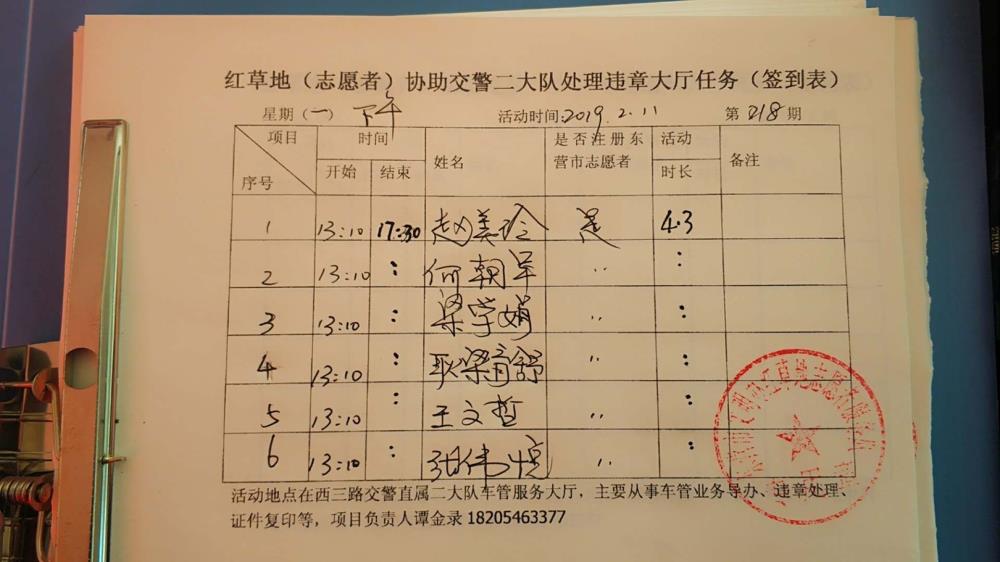 红草地（志愿者）协助交警二大队处理违章大厅任务（签到表）
星期（一）下午 活动时间:2019.2.11 第218期
项目 时间 姓名 是否注册东 活动 备注
序号 开始 结束 营市志愿者 时长
1 13:10 17:30 赵美玲 是 4.3
2 13:10 : 何朝军 〃 :
3 13:10 : 梁学娟 〃 :
4 13:10 : 耿梁育舒 〃 :
5 13:10 : 王文哲 〃 :
6 13:10 : 伟 〃 :
活动地点在西三路交警直属二大队车管服务大厅，主要从事车管业务导办、违章处理、
证件复印等，项目负责人谭金录 18205463377
红草地志愿者